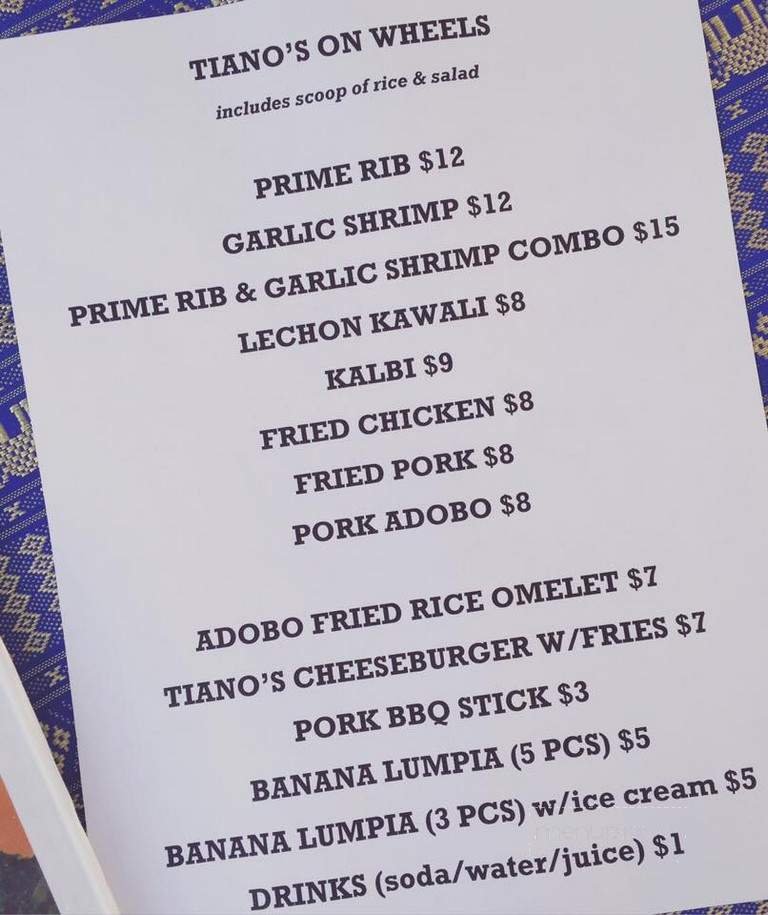 TIANO'S ON WHEELS
includes scoop of rice & salad
PRIME RIB $12
GARLIC SHRIMP $12
PRIME RIB & GARLIC SHRIMP COMBO $15
LECHON KAWALI $8
KALBI $9
FRIED CHICKEN $8
FRIED PORK $8
PORK ADOBO $8
ADOBO FRIED RICE OMELET $7
TIANO'S CHEESEBURGER W/FRIES $7
PORK BBQ STICK $3
BANANA LUMPIA (5 PCS) $5
BANANA LUMPIA (3 PCS) w/ice cream $5
DRINKS (soda/water/juice) $1